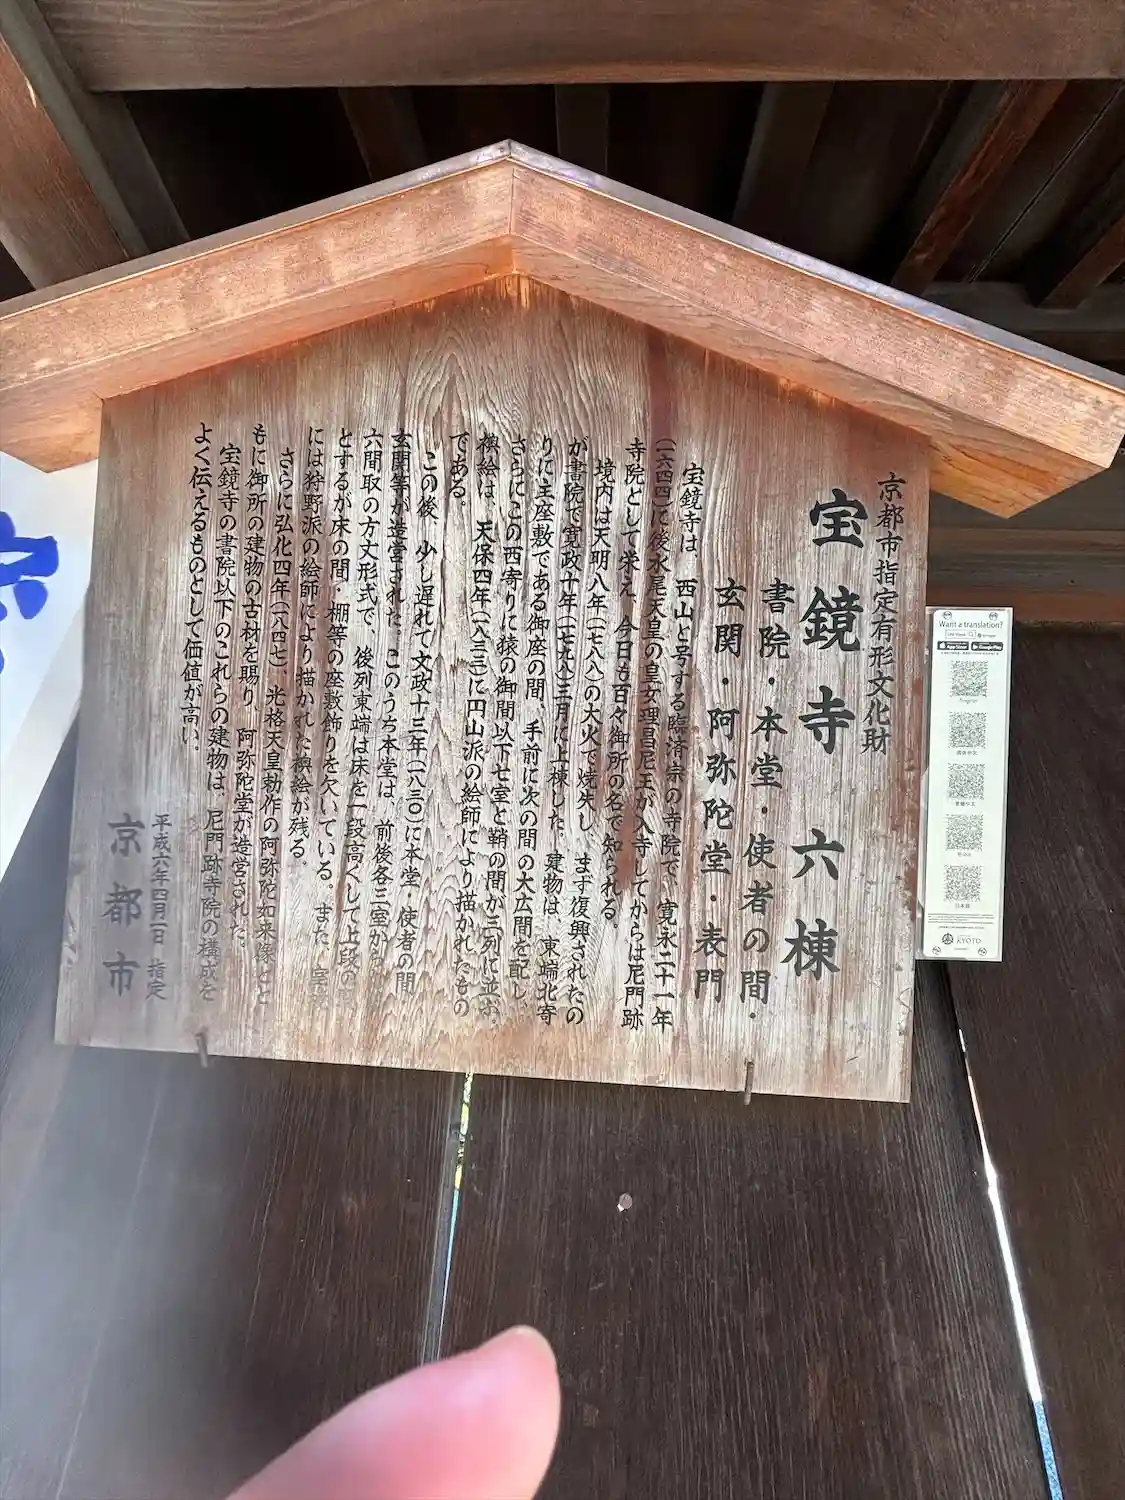 京都市指定有形文化財
宝鏡寺 六棟
書院・本堂・使者の間・
玄関・阿弥陀堂・表門
宝鏡寺は、西山と号する臨済宗の寺院で、寛永二十一年
(一六四四)に後水尾天皇の皇女理昌尼王が入寺してからは尼門跡
寺院として栄え、今日も百々御所の名で知られる。
境内は天明八年(一七八八)の大火で焼失し、まず復興されたの
が書院で寛政十年(一七九八)三月に上棟した。建物は、東端北寄
りに主座敷である御座の間、手前に次の間の大広間を配し、
さらにこの西寄りに猿の御間以下七室と鞘の間が三列に並ぶ。
襖絵は、天保四年(一八三三)に円山派の絵師により描かれたもの
である。
この後、少し遅れて文政十三年(一八三〇)に本堂・使者の間・
玄関等が造営された。このうち本堂は、前後各三室から
六間取の方丈形式で、後列東端は床を一段高くして上段の
とするが床の間・棚等の座敷飾りを欠いている。また、室
には狩野派の絵師により描かれた襖絵が残る。
さらに弘化四年(一八四七)、光格天皇勅作の阿弥陀如来像とと
もに御所の建物の古材を賜り、阿弥陀堂が造営された。
宝鏡寺の書院以下のこれらの建物は、尼門跡寺院の構成を
よく伝えるものとして価値が高い。
平成六年四月一日 指定
京都市
Want a translation?
App Store
Google Play
한국어
日本語
KYOTO